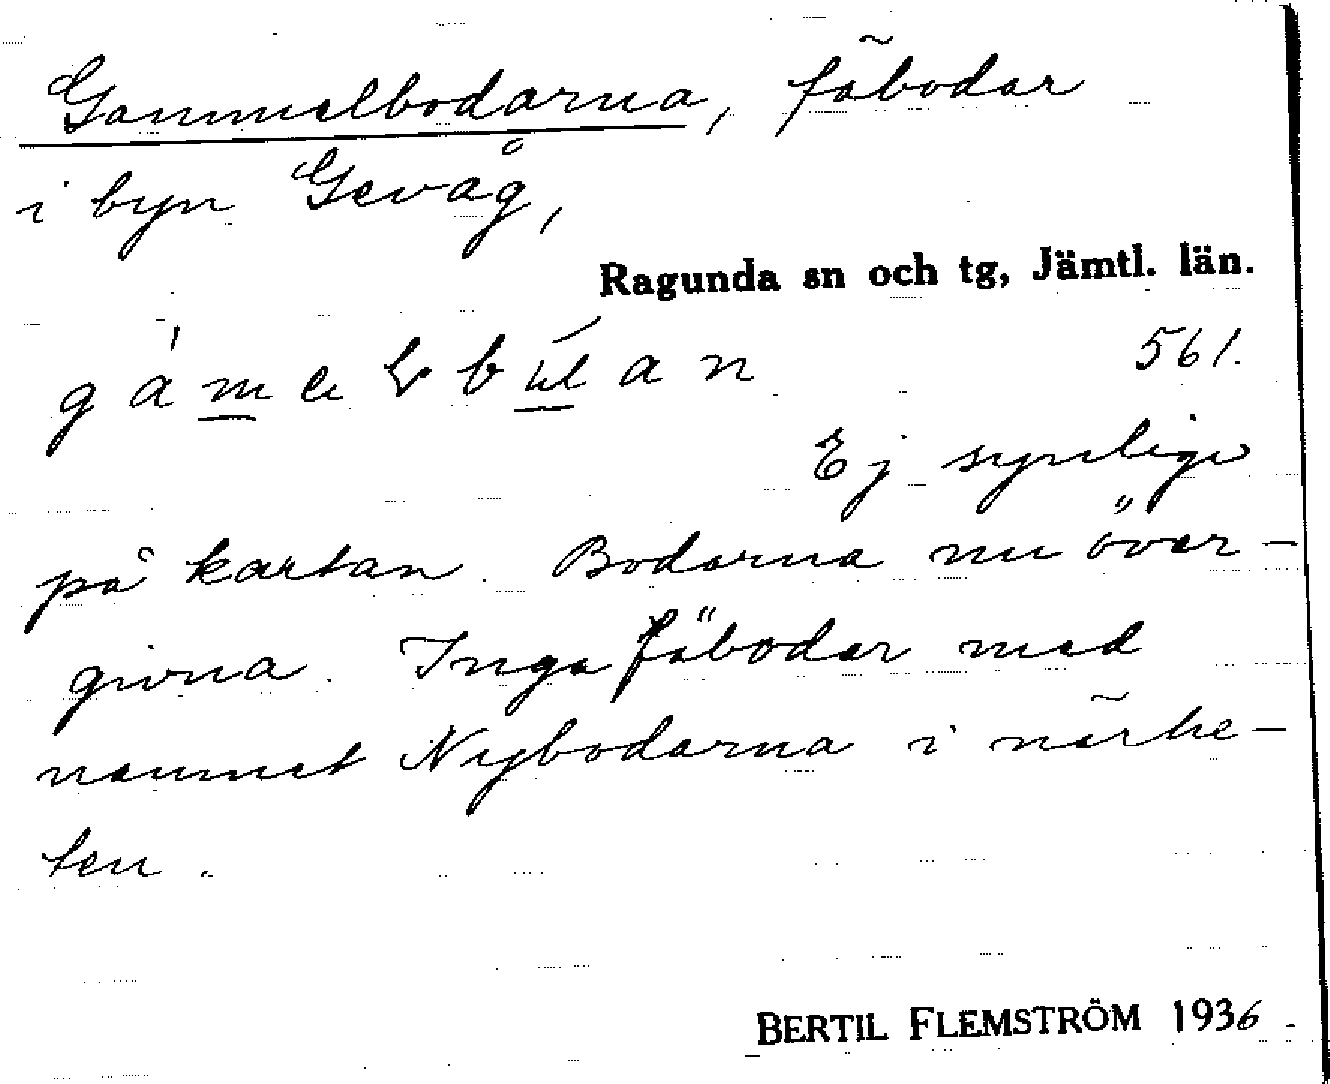 Gammelbodarna, fäbodar
i byn Gevåg,
Ragunda sn och tg, Jämtl. län.
561.
Ej synliga
på kartan. Bodarna nu över-
givna. Inga fäbodar med
namnet Nybodarna i närhe-
ten.
BERTIL FLEMSTRÖM 1936